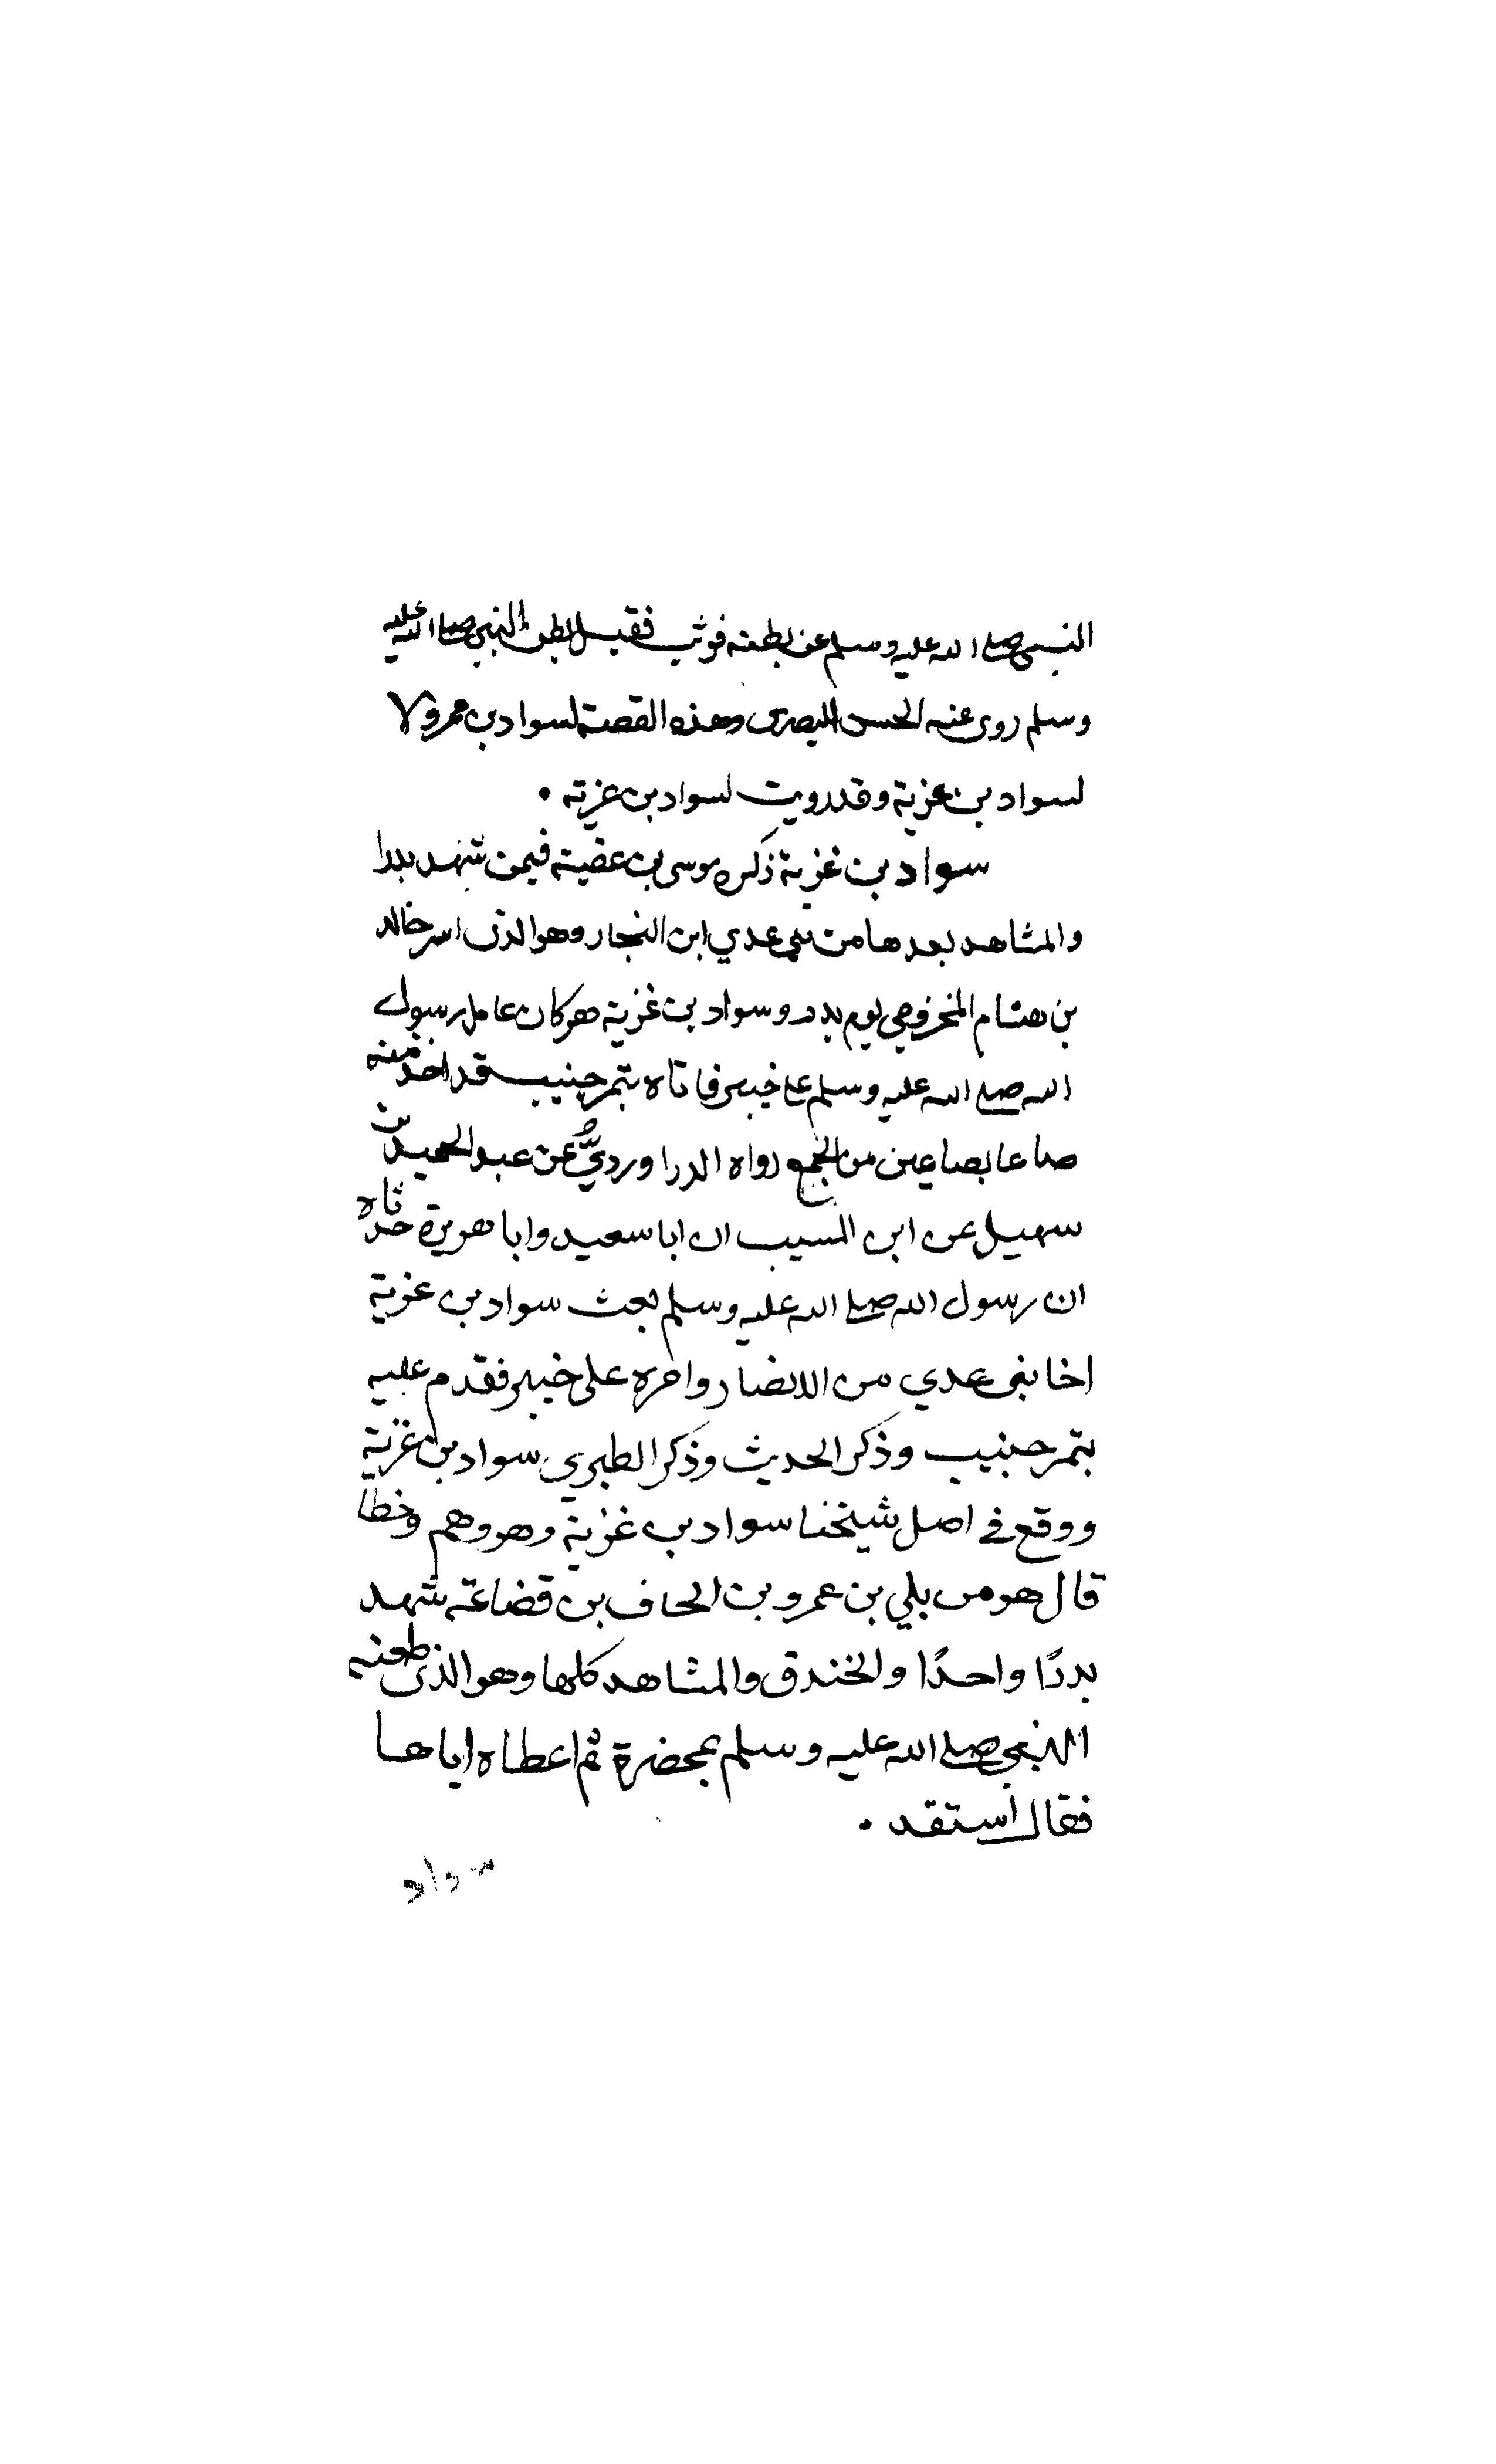 النبي صلى الله عليه وسلم عن بطنه فوثب فقبل بطن النبي صلى الله عليه
وسلم روى عنه الحسن البصرى وهذه القصة لسواد بن عمرو لا
لسواد بن غزية وقد رويت لسواد بن غزية .
سواد بن غزية ذكره موسى بن عقبة فيمن شهد بدرا
والمشاهد بعدها من بني عدي ابن النجار وهو الذى اسر خالد
بن هشام المخزومي يوم بدر وسواد بن غزية هو كان عامل رسول
الله صلى الله عليه وسلم على خيبر فاتاه بتمر جنيب قد اخذ منه
صاعا بصاعين من الجمع رواه الدراورديُّ عن عبد الحميد بن
سهيل عن ابن المسيب ان ابا سعيد وابا هريرة حدثاه
ان رسول الله صلى الله عليه وسلم بعث سواد بن غزية
اخا بنى عدي من الانصار وامره على خيبر فقدم عليه
بتمر جنيب وذكر الحديث وذكر الطبري سواد بن غزية
ووقع في اصل شيخنا سواد بن غزية وهو وهم وخطا
قال هو من بلي بن عمرو بن الحاف بن قضاعة شهد
بدرًا واحدًا والخندق والمشاهد كلها وهو الذى طعنه
النبي صلى الله عليه وسلم بمخصرة ثم اعطاه اياها
فقال استقد .
سواد